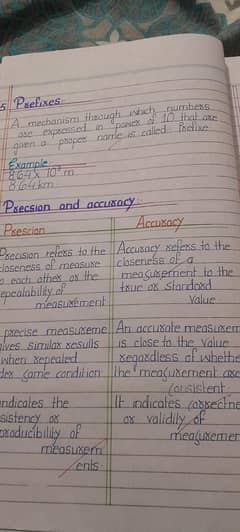 5 Prefixes
A mechanism through which numbers
are expressed in power of 10 that are
given a proper name is called Prefixe
Example
8.64 x 10³ m
8.64 km
Precsion and accuracy
Prescion
Precision refers to the
closeness of measure
o each other or the
epeatability of
measurement
precise measureme
ives similar results
when repeated
der same condition
indicates the
sistency or
roducibility of
measurem
ents.
Accuracy
Accuracy refers to the
closeness of a
measurement to the
true or standard
Value
An accurate measurem
is close to the value
regardless of whethe
the measurement are
consistent.
It indicates correctne
or validity of
measuremen